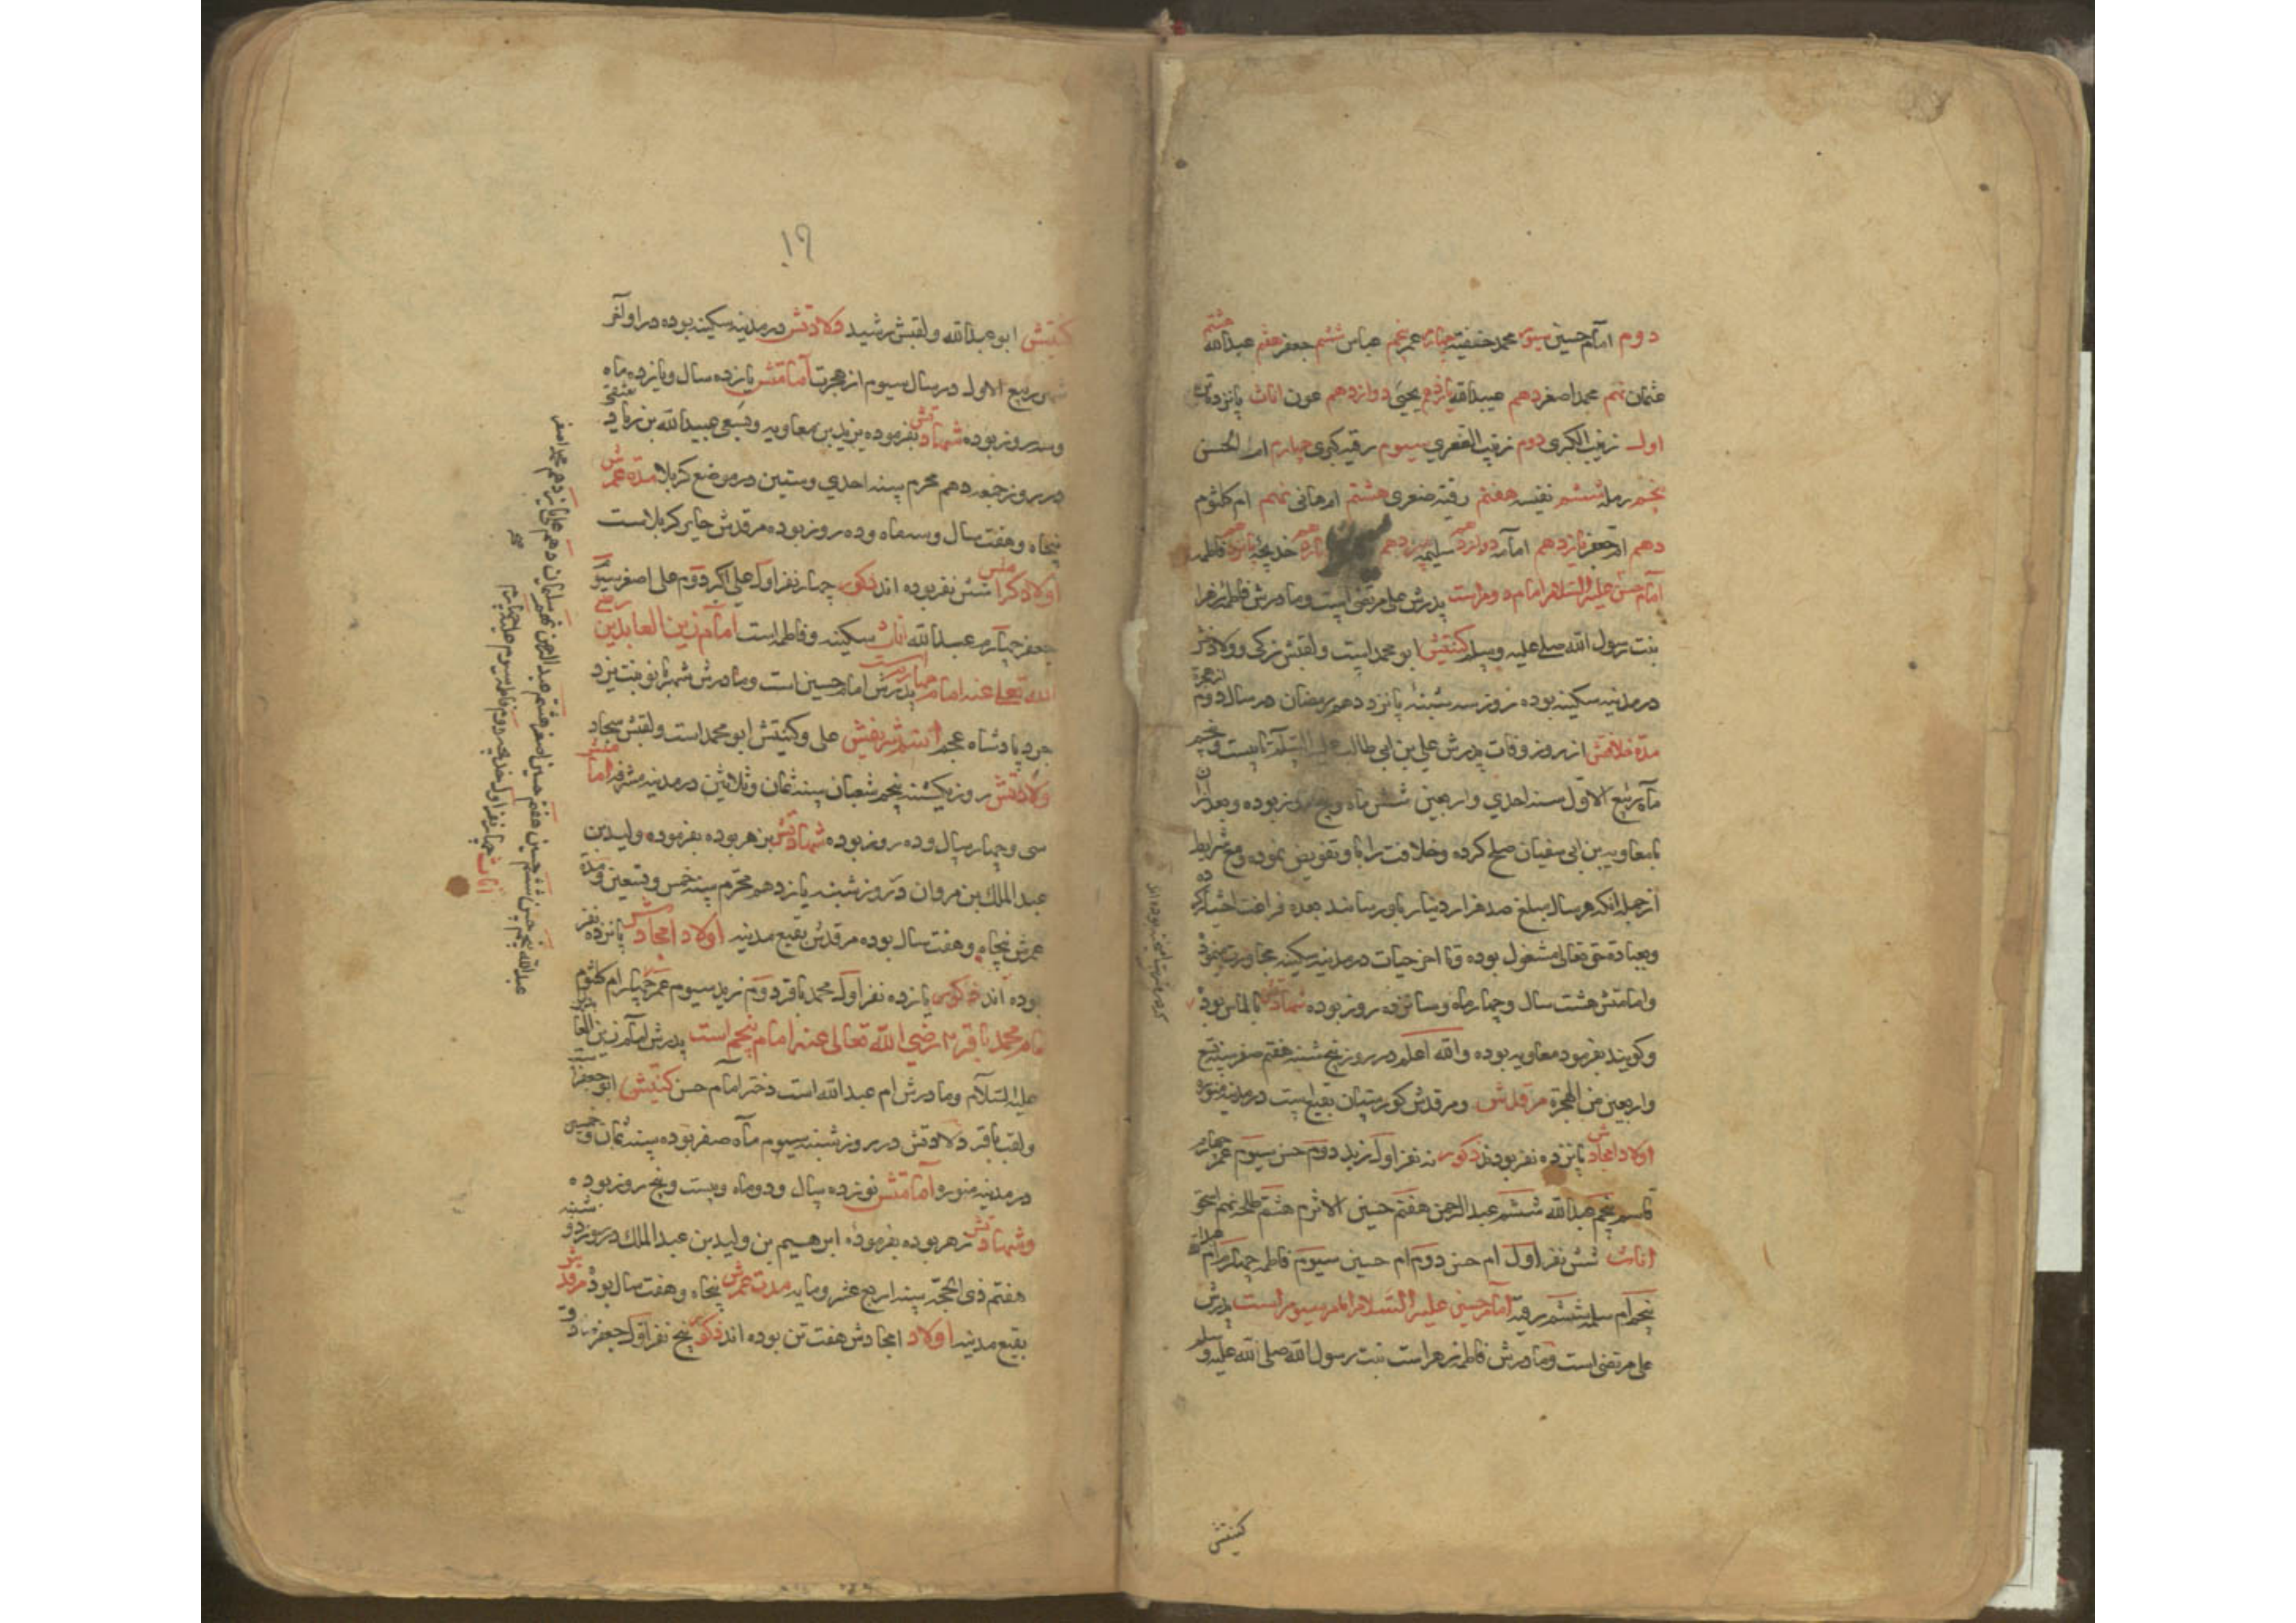 دوم امام حسین سیوم محمد حنفیه چهارم عمر پنجم عباس ششم جعفر هفتم عبدالله هشتم
عثمان نهم محمد اصغر دهم عبیدالله یازدهم یحیی دوازدهم عون اناث پانزده تن
اول زینب الکبری دوم زینب الصغری سیوم رقیه کبری چهارم ام الحسن
پنجم رمله ششم نفیسه هفتم رقیه صغری هشتم ام هانی نهم ام کلثوم
دهم ام جعفر یازدهم امامه دوازدهم سلیمه سیزدهم خدیجه پانزدهم فاطمه
امام حسن علیه السلام امام دوم است پدرش علی مرتضی است و مادرش فاطمه زهرا
بنت رسول الله صلی علیه وسلم کنتیش ابو محمد است ولقبش زکی و ولادتش
در مدینه سکینه بوده روز سه شنبه پانزدهم رمضان در سال دوم از هجرة
مدة خلافتش از روز وفات پدرش علی بن ابی طالب علیه السلام تا بیست و پنجم
ماه ربیع الاول سنه احدی واربعین شش ماه و پنج روز بوده وبعد ازان
با معاویه بن ابی سفیان صلح کرده وخلافت را باو تفویض نموده و مع شرایط
از جمله انکه هر سال مبلغ صد هزار دینار باو رساند بعده فراغت اختیار کرده
وبعبادة حق تعالی مشغول بوده وتا اخر حیات در مدینه سکینه مجاورت نموده
وامامتش هشت سال وچهار ماه وسانزده روز بوده شهادتش بالماس بوده
وکویند بفرموده معاویه بوده والله اعلم در روز پنج شنبه هفتم صفر سنه تسع
واربعین من الهجرة مرقدش ومرقدش کورستان بقیع است در مدینه منوره
اولاد امجادش پانزده نفر بودند ذکور نه نفر اول زید دوم حسن سیوم عمر چهارم
قاسم پنجم عبدالله ششم عبدالرحمن هفتم حسین الاثرم هشتم طلحه نهم اسحق
اناث شش نفر اول ام حسن دوم ام حسین سیوم فاطمه چهارم ام عبدالله
پنجم ام سلمه ششم رقیه امام حسین علیه السلام امام سیوم است پدرش
علی مرتضی است ومادرش فاطمه زهرا است بنت رسول الله صلی الله علیه وسلم
کنیتش
۱۹
کنیتش ابو عبدالله ولقبش رشید ولادتش در مدینه سکینه بوده در اواخر
شهر ربیع الاول در سال سیوم از هجرت امامتش یازده سال ویازده ماه
وسه روز بوده شهادتش بفرموده یزید بن معاویه وبسعی عبیدالله بن زیاد
در روز جمعه دهم محرم سنه احدی وستین در موضع کربلا مدة عمرش
پنجاه وهفت سال وسه ماه وده روز بوده مرقدش حایر کربلاست
اولاد کرامش شش نفر بوده اند ذکور چهار نفر اول علی اکبر دوم علی اصغر سیوم
جعفر چهارم عبدالله اناث سکینه وفاطمه است امام زین العابدین رضی
الله تعالی عنه امام چهارم است پدرش امام حسین است ومادرش شهربانو بنت یزد
جرد پادشاه عجم اسم شریفش علی وکنیتش ابو محمد است ولقبش سجاد
ولادتش روز یکشنبه پنجم شعبان سنه ثمان وثلاثین در مدینه مشرفه امامتش
سی وچهار سال وده روز بوده شهادتش بزهر بوده بفرموده ولید بن
عبد الملك بن مروان در روز شنبه یازدهم محرم سنه خمس وتسعین ومدة
عمرش پنجاه وهفت سال بوده مرقدش بقیع مدینه اولاد امجادش پانزده نفر
بوده اند ذکور یازده نفر اول محمد باقر دوم زید سیوم عمر چهارم ام کلثوم
امام محمد باقر رضی الله تعالی عنه امام پنجم است پدرش امام زین العابدین
علیه السلام ومادرش ام عبدالله است دختر امام حسن کنیتش ابو جعفر
ولقب باقر ولادتش در روز شنبه سیوم ماه صفر بوده سنه ثمان وخمسین
در مدینه منوره امامتش نوزده سال ودو ماه وبیست و پنج روز بوده
وشهادتش زهر بوده بفرموده ابرهیم بن ولید بن عبد الملك در روز دوشنبه
هفتم ذی الحجة سنه اربع عشر ومایه مدت عمرش پنجاه وهفت سال بوده مرقدش
بقیع مدینه اولاد امجادش هفت تن بوده اند ذکور پنج نفر اول جعفر صادق
عبدالله پنجم حسن ششم حسین هفتم حسین اصغر هشتم عبدالرحمن نهم سلیمان دهم علی یازدهم محمد اصغر
اناث چهار نفر اول خدیجه دوم فاطمه سیوم علیه چهارم ام